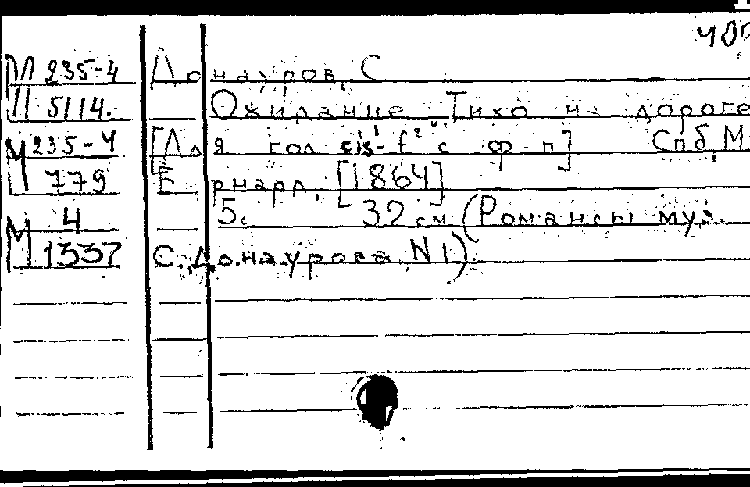 400
М 235-4 Донауров, С
П 5114. Ожидание Тихо на дороге
М 235-4 [Для гол cis¹-f² с ф п] Спб, М
779 Бернард, [1864]
М 4 5с 32 см (Романсы муз.
1337 С. Донаурова, N 1).